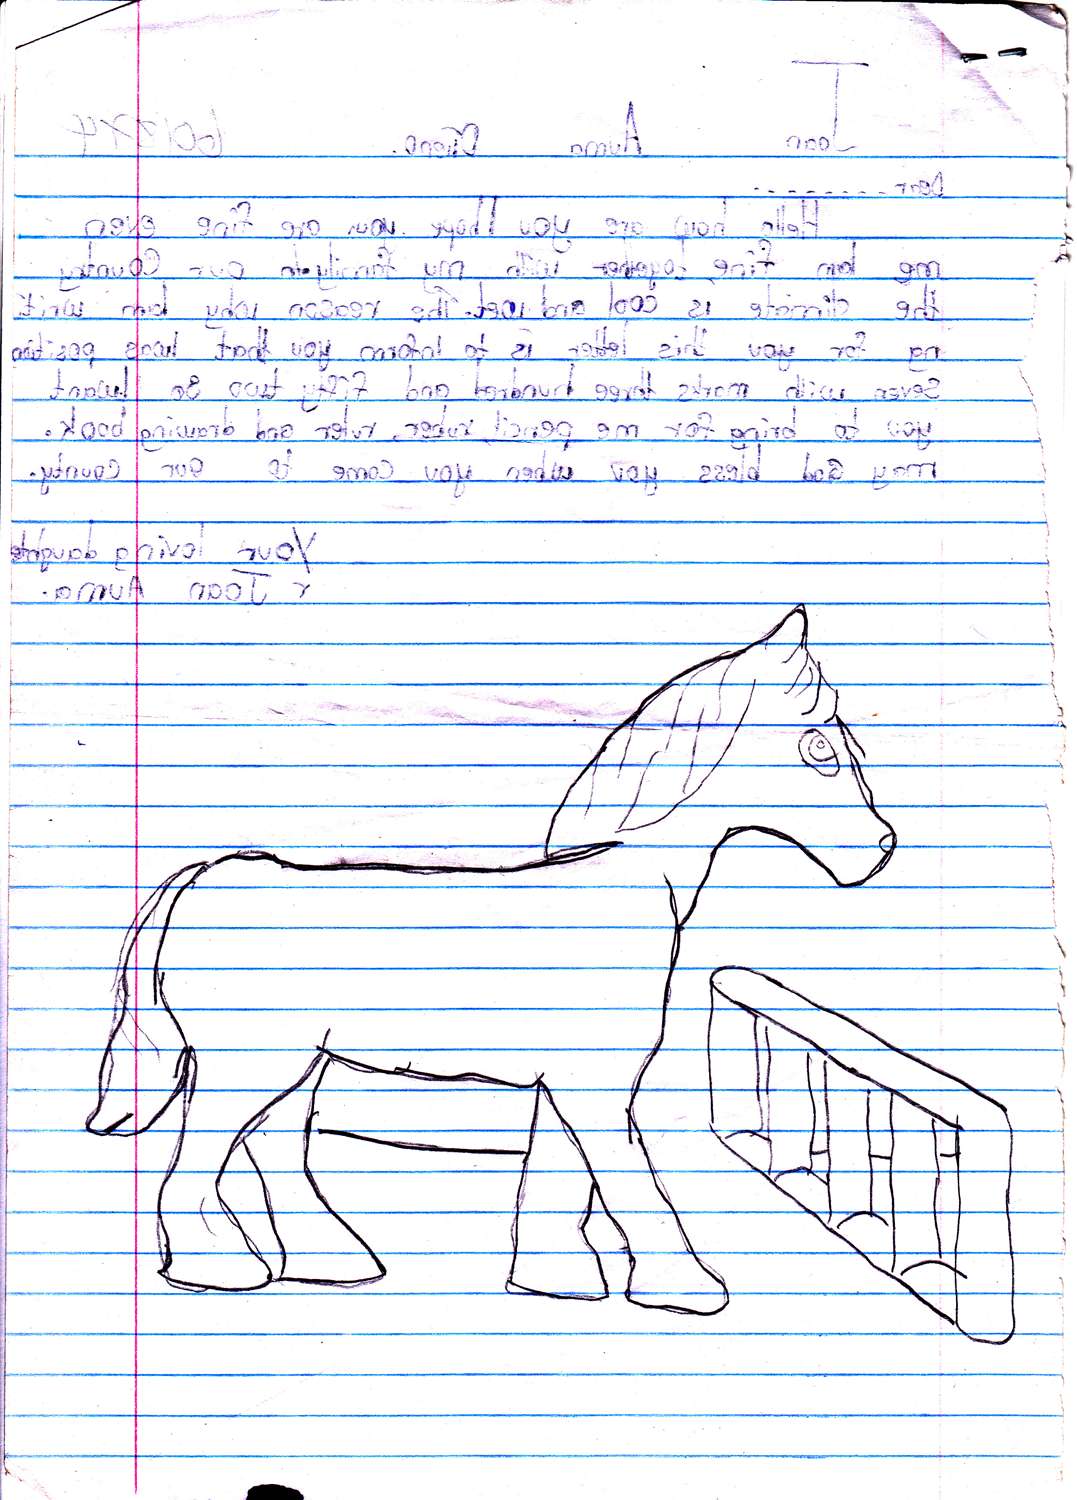 Joan Auma Otieno.
Dear ---------
Hello how are you Ihope you are fine even
me Iam fine together with my family.In our Country
the climate is cool and wet. The reason why Iam writi
ng for you this letter is to inform you that Iwas position
seven with marks three hundred and fifty two so Iwant
you to bring for me pencil, ruber, ruler and drawing book.
may God bless you when you come to our county.
Your loving daughte
r Joan Auma.